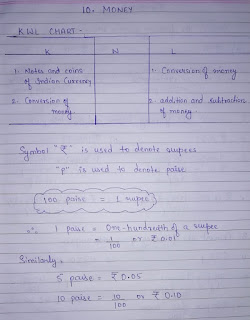 10. MONEY
KWL CHART:-
K N L
1. Notes and coins of Indian Currency
1. Conversion of money
2. Conversion of money
2. addition and subtraction of money.
Symbol "₹" is used to denote rupees
"P" is used to denote paise
100 paise = 1 rupee
∴ 1 paise = One-hundredth of a rupee
= 1/100 or ₹ 0.01
Similarly,
5 paise = ₹ 0.05
10 paise = 10/100 or ₹ 0.10